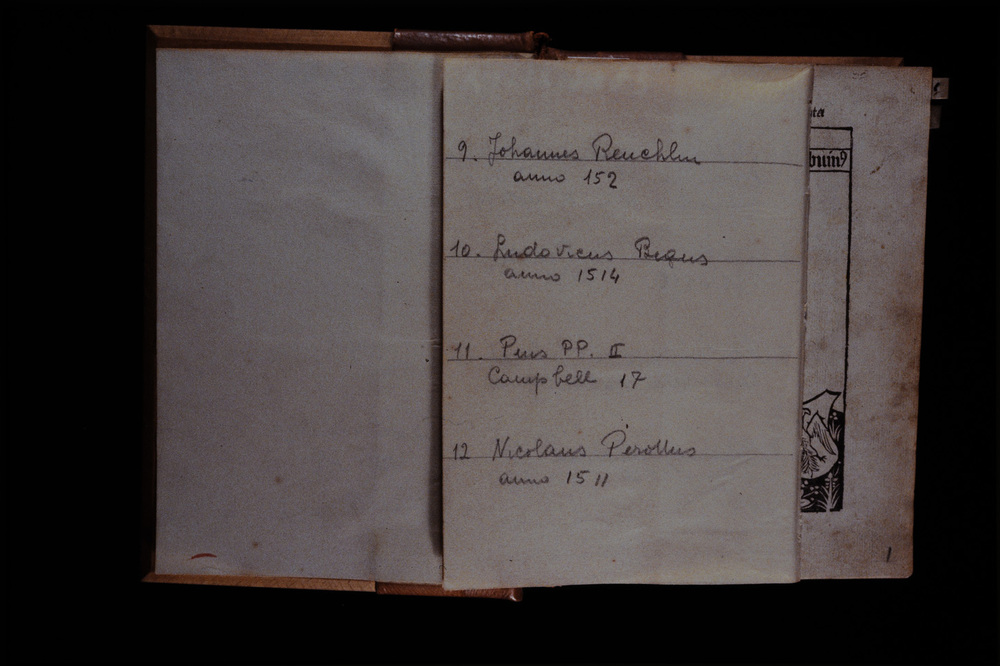 9. Johannes Reuchlin
anno 152
10. Ludovicus Bigus
anno 1514
11. Pius PP. II
Campbell 17
12 Nicolaus Perottus
anno 1511
buin9
1